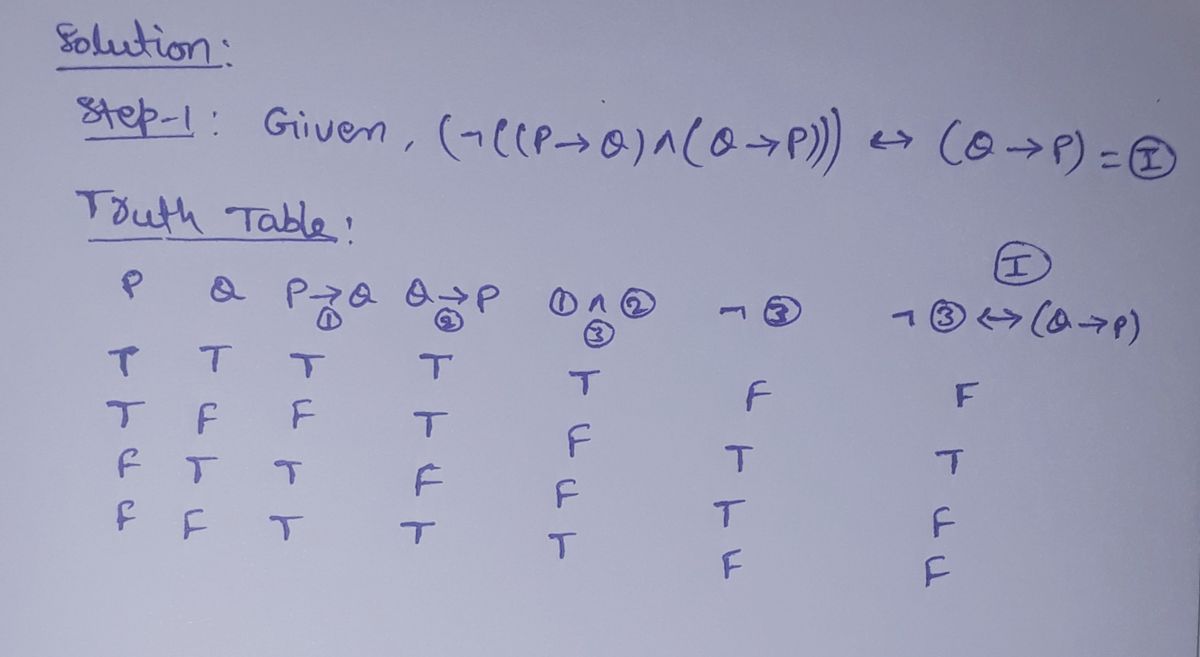 Solution:
Step-1: Given, (¬((P→Q)∧(Q→P))) ↔ (Q→P) = Ⓘ
Truth Table:
Ⓘ
P Q P→Q Q→P ①∧② ¬③ ¬③↔(Q→P)
① ② ③
T T T T T F F
T F F T F T T
F T T F F T F
F F T T T F F